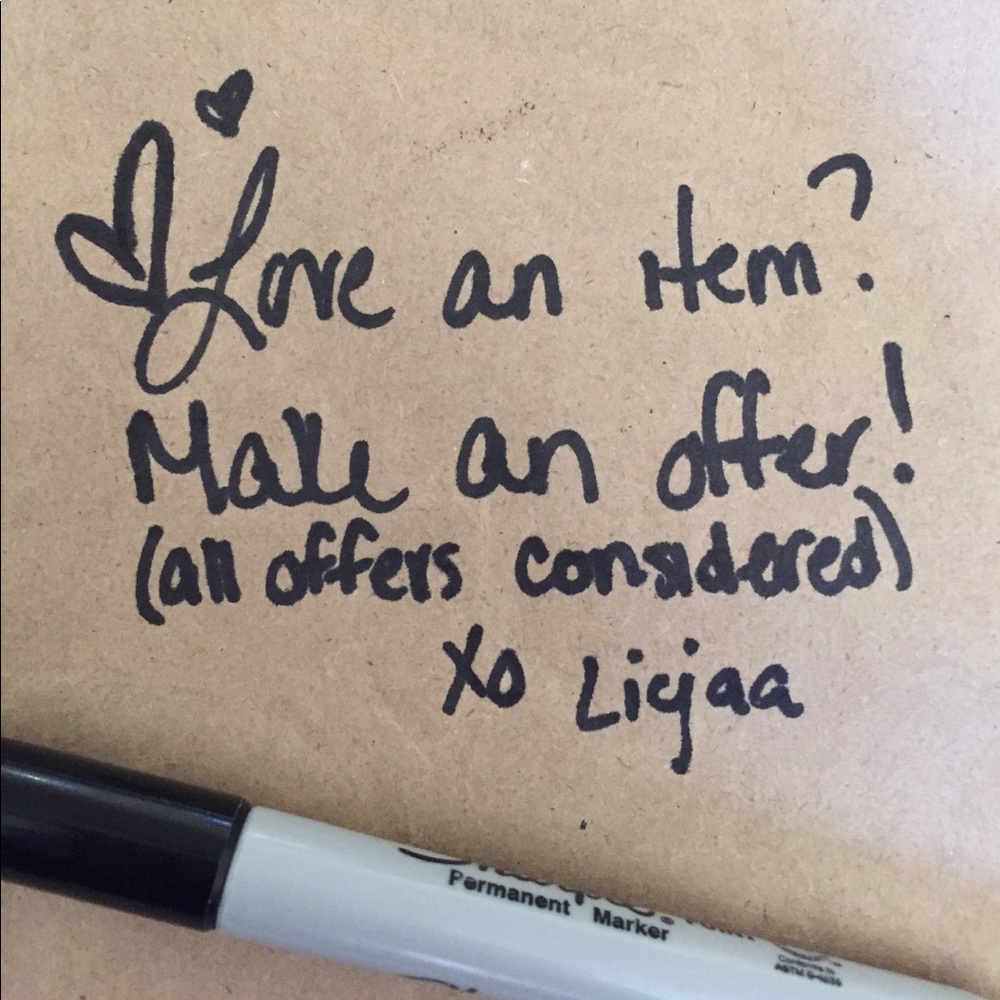 Love an item?
Make an offer!
(all offers considered)
xo Licjaa
Permanent Marker
Conforms to